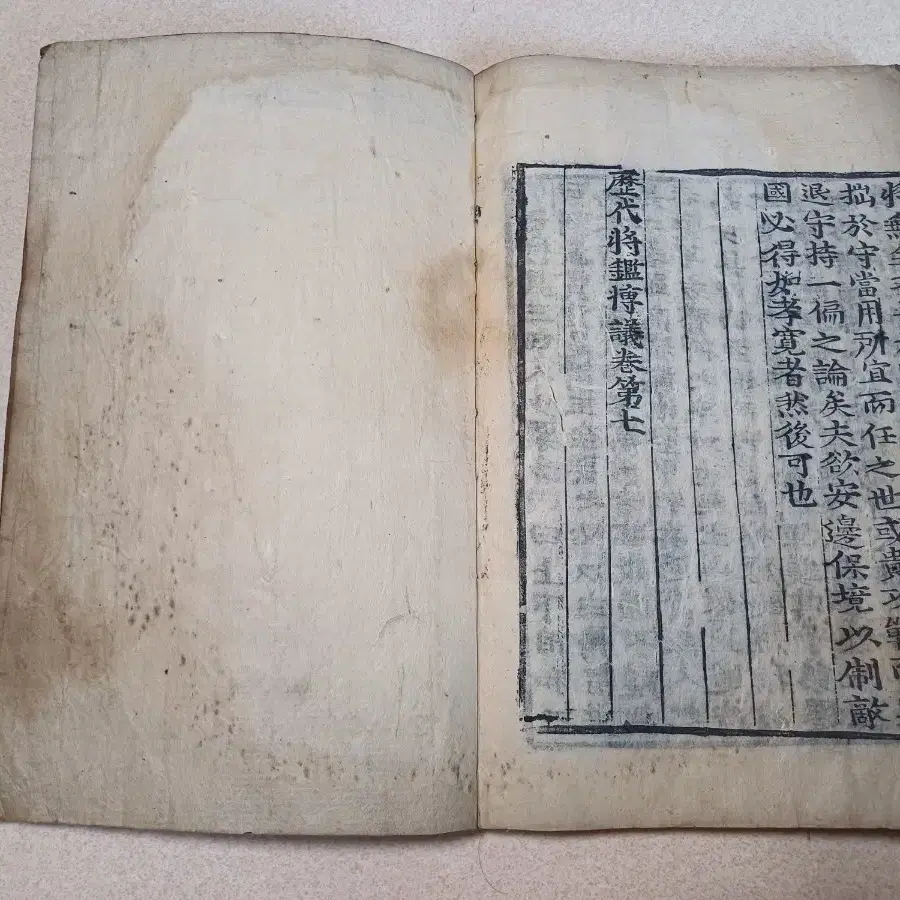 拙於守當用所宜而任之世或貴攻戰而
退守持一偏之論矣夫欲安邊保境以制敵
國必得如孝寬者然後可也
歷代將鑑博議卷第七